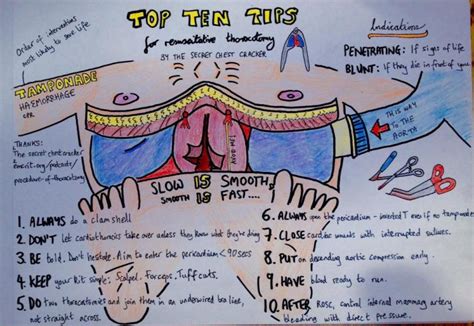 TOP TEN TIPS
for resuscitative thoracotomy
BY THE SECRET CHEST CRACKER
Order of interventions
most likely to save life
TAMPONADE
HAEMORRHAGE
CPR
THANKS:
The secret chest cracker
Indications
PENETRATING: If signs of life
BLUNT: If they die in front of you
THIS WAY
TO THE
AORTA
SLOW IS SMOOTH,
SMOOTH IS FAST....
1. ALWAYS do a clamshell
2. DON'T let cardiothoracics take over unless they know what they're doing
3. BE bold, don't hesitate. Aim to enter the pericardium <90secs
4. KEEP your kit simple: Scalpel. Forceps. Tuffcuts.
5. DO two thoracotomies and join them in an underwired bra line,
not straight across.
6. ALWAYS open the pericardium - inverted T even if no tamponade
7. CLOSE cardiac wounds with interrupted sutures.
8. PUT on descending aortic compression early.
9. HAVE blood ready to run.
10. AFTER ROSC, control internal mammary artery
bleeding with direct pressure.